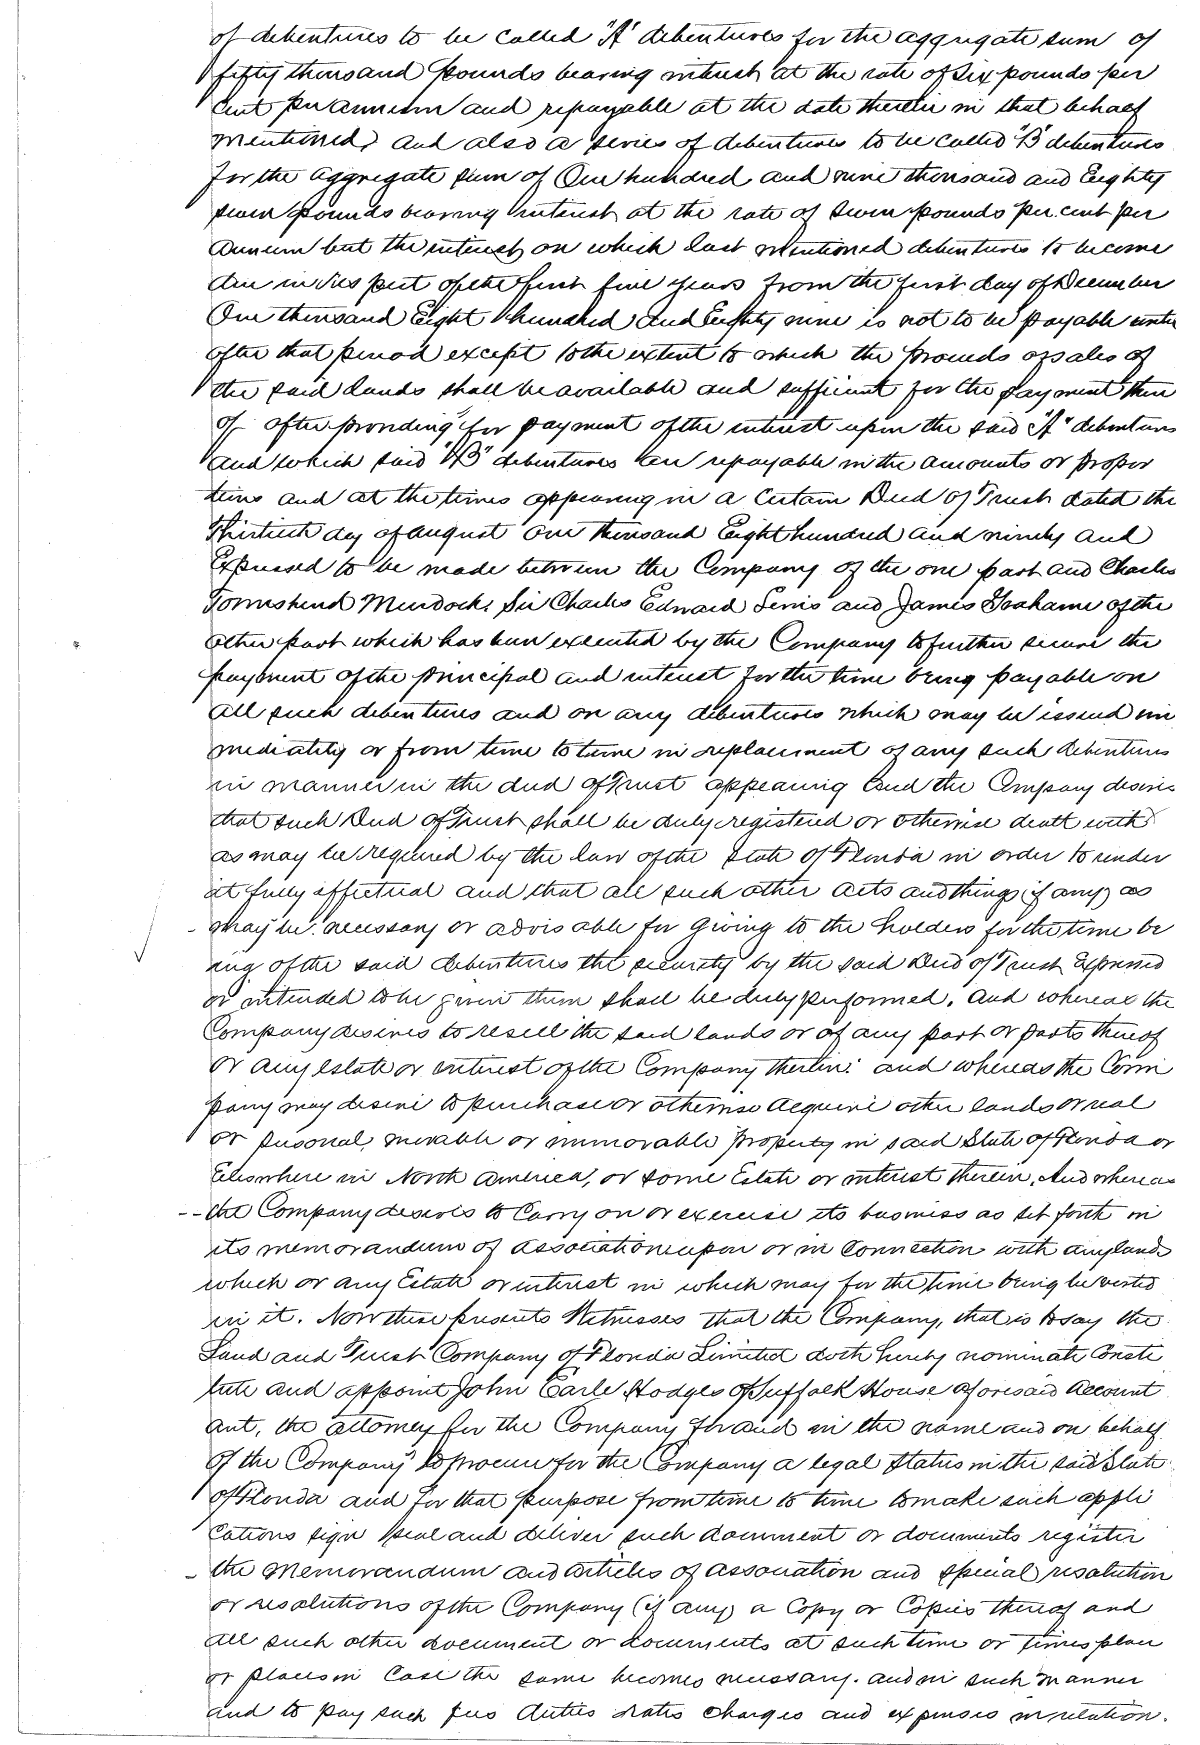 of debentures to be called "A" debentures for the aggregate sum of
fifty thousand pounds bearing interest at the rate of Six pounds per
cent per annum and repayable at the date therein in that behalf
mentioned, and also a series of debentures to be called "B" debentures
for the aggregate sum of One hundred and nine thousand and Eighty
seven pounds bearing interest at the rate of Seven pounds per cent per
annum but the interest on which last mentioned debentures to become
due in respect of the first five years from the first day of December
One thousand Eight hundred and Eighty nine is not to be payable until
after that period except to the extent to which the proceeds of sales of
the said lands shall be available and sufficient for the payment there
of after providing for payment of the interest upon the said "A" debentures
and which said "B" debentures are repayable in the amounts or propor
tions and at the times appearing in a Certain Deed of Trust dated the
Thirtieth day of August One thousand Eight hundred and ninety and
Expressed to be made between the Company of the one part and Charles
Townshend Murdock, Sir Charles Edward Lewis and James Grahame of the
other part which has been executed by the Company to further secure the
payment of the principal and interest for the time being payable on
all such debentures and on any debentures which may be issued im
mediately or from time to time in replacement of any such debentures
in manner in the deed of Trust appearing and the Company desires
that such Deed of Trust shall be duly registered or otherwise dealt with
as may be required by the law of the State of Florida in order to render
it fully effectual and that all such other acts and things (if any) as
may be necessary or advisable for giving to the holders for the time be
ing of the said debentures the security by the said Deed of Trust Expressed
or intended to be given them shall be duly performed. And whereas the
Company desires to resell the said lands or of any part or parts thereof
or any estate or interest of the Company therein: and whereas the Com
pany may desire to purchase or otherwise acquire other lands or real
or personal, movable or immovable property in said State of Florida or
Elsewhere in North America, or some Estate or interest therein, And whereas
the Company desires to Carry on or exercise its business as set forth in
its memorandum of association upon or in Connection with any lands
which or any Estate or interest in which may for the time being be vested
in it. Now these presents Witnesses that the Company, that is to say the
Land and Trust Company of Florida Limited doth hereby nominate Consti
tute and appoint John Earle Hodges of Suffolk House aforesaid Account
ant, the attorney for the Company for and in the name and on behalf
of the Company to procure for the Company a legal Status in the said State
of Florida and for that purpose from time to time to make such appli
cations sign seal and deliver such document or documents register
the Memorandum and articles of association and special resolution
or resolutions of the Company (if any) a Copy or Copies thereof and
all such other document or documents at such time or times place
or places in Case the same becomes necessary. and in such manner
and to pay such fees duties rates charges and expenses in relation.